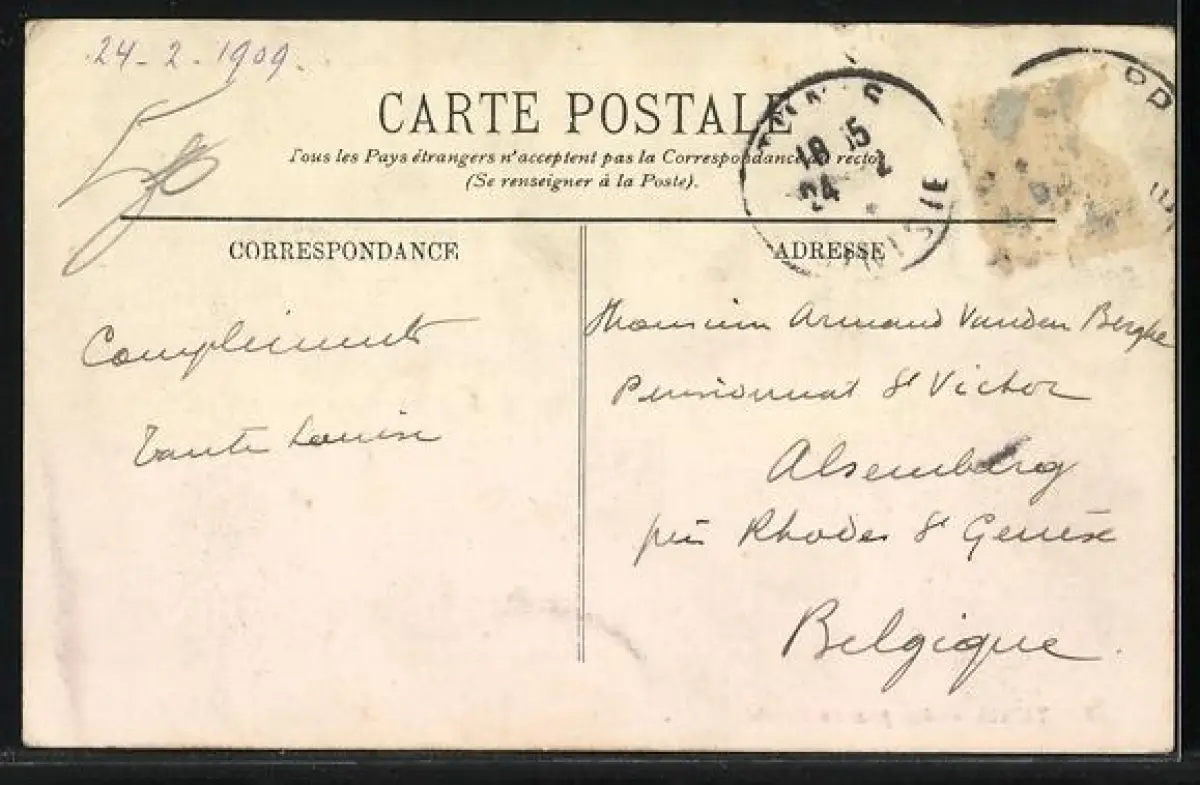 24-2-1909.
CARTE POSTALE
Tous les Pays étrangers n'acceptent pas la Correspondance au recto
(Se renseigner à la Poste).
TUNIS
18 15
24 2
TUNISIE
CORRESPONDANCE
ADRESSE
Compliments
Tante Louise
Monsieur Armand Vanden Berghe
Pensionnat St Victor
Alsemberg
près Rhodes St Genèse
Belgique.